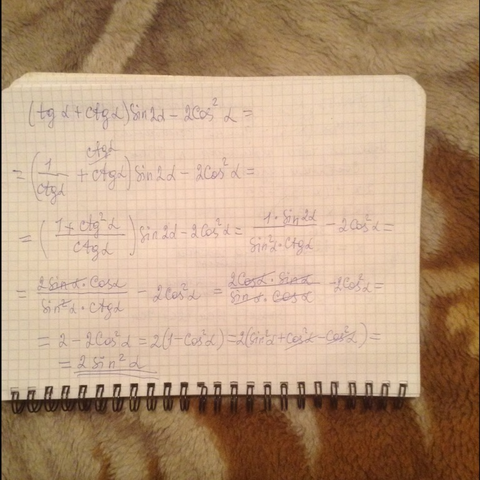 (tg α + ctg α) sin 2α − 2cos² α =
= (1/ctg α + ctg α) sin 2α − 2cos² α =
= ((1 + ctg² α)/ctg α) sin 2α − 2cos² α = (1 · sin 2α)/(sin² α · ctg α) − 2cos² α =
= (2 sin α · cos α)/(sin² α · ctg α) − 2cos² α = (2cos α · sin α)/(sin α · cos α) − 2cos² α =
= 2 − 2cos² α = 2(1 − cos² α) = 2(sin² α + cos² α − cos² α) =
= 2 sin² α